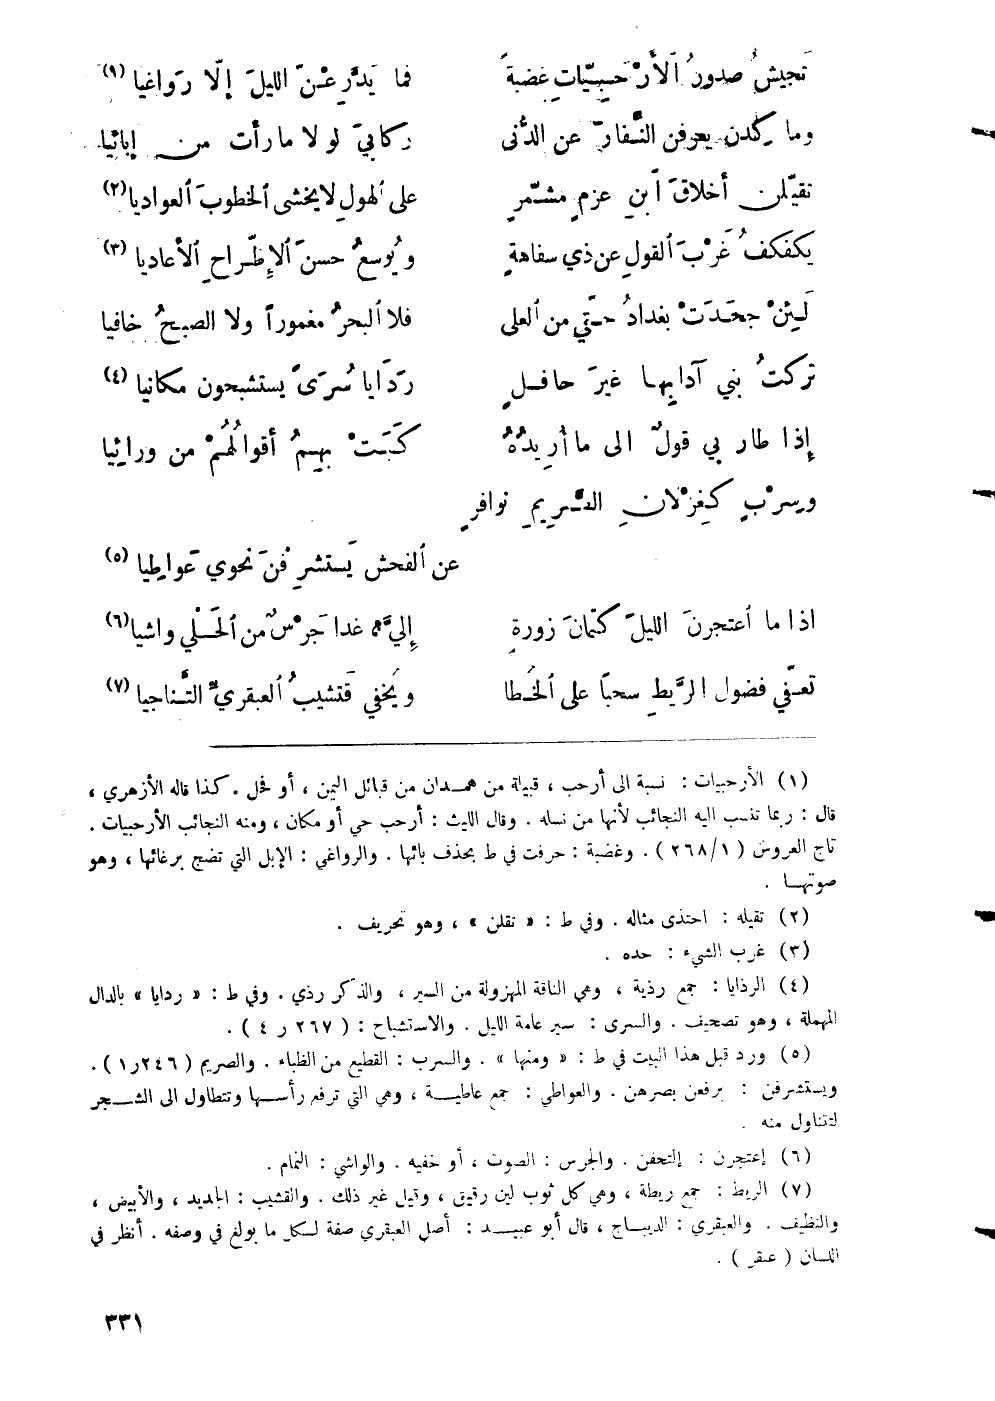 تَجيشُ صدورُ ٱلأَرْحَبِيّاتِ غضبةً فما يَدَّرِعْنَ الليلَ إلّا رَواغيا (١)
وما كِدْنَ يعرفن النِّفارَ عن الدُّنى ركابيَ لولا ما رأت من إبائيا
تقيّلن أخلاقَ ٱبنِ عزمٍ مشمّرٍ على ٱلهولِ لا يخشى ٱلخطوبَ ٱلعواديا (٢)
يكفكفُ غَرْبَ ٱلقولِ عن ذي سفاهةٍ ويُوسعُ حسنَ ٱلإطّراحِ ٱلأعاديا (٣)
لَئِنْ جحَدَتْ بغدادُ حقّي من ٱلعلى فلا ٱلبحرُ مغموراً ولا الصبحُ خافيا
تركتُ بني آدابِها غيرَ حافلٍ رَذَايا سُرَىً يستشبحون مكانيا (٤)
إذا طار بي قولٌ الى ما أريدُهُ كَبَتْ بهِمُ أقوالُهُمْ من ورائِيا
وسِرْبٍ كغِزْلانِ الصَّريمِ نوافرٍ
عن ٱلفحش يَستشرِفْنَ نحوي عَواطِيا (٥)
اذا ما ٱعتجرنَ الليلَ كتمانَ زورةٍ إليَّ غدا جَرْسٌ من ٱلحَلْي واشيا (٦)
تعفّي فضول الرَّيطِ سحبًا على ٱلخُطا ويُخفي قَشيبُ ٱلعبقريِّ التَّناجيا (٧)
(١) الأرحبيات : نسبة الى أرحب ، قبيلة من همدان من قبائل اليمن ، أو فحل . كذا قاله الأزهري ،
قال : ربما تنسب اليه النجائب لأنها من نسله . وقال الليث : أرحب حي أو مكان ، ومنه النجائب الأرحبيات .
تاج العروس ( ١/٢٦٨ ) . وغضبة : حرفت في ط بحذف بائها . والرواغي : الإبل التي تضج برغائها ، وهو
صوتها .
(٢) تقيله : احتذى مثاله . وفي ط : « تقلن » ، وهو تحريف .
(٣) غرب الشيء : حده .
(٤) الرذايا : جمع رذية ، وهي الناقة المهزولة من السير ، والذكر رذي . وفي ط : « ردايا » بالدال
المهملة ، وهو تصحيف . والسرى : سير عامة الليل . والاستشباح : ( ٢٦٧ ر ٤ ) .
(٥) ورد قبل هذا البيت في ط : « ومنها » . والسرب : القطيع من الظباء . والصريم ( ٢٤٦ر١ ) .
ويستشرفن : يرفعن بصرهن . والعواطي : جمع عاطية ، وهي التي ترفع رأسها وتتطاول الى الشجر
لتتناول منه .
(٦) إعتجرن : إلتحفن . والجرس : الصوت ، أو خفيه . والواشي : النمام .
(٧) الريط : جمع ريطة ، وهي كل ثوب لين رقيق ، وقيل غير ذلك . والقشيب : الجديد ، والأبيض ،
والنظيف . والعبقري : الديباج ، قال أبو عبيد : أصل العبقري صفة لكل ما بولغ في وصفه . أنظر في
اللسان ( عبقر ) .
٣٣١